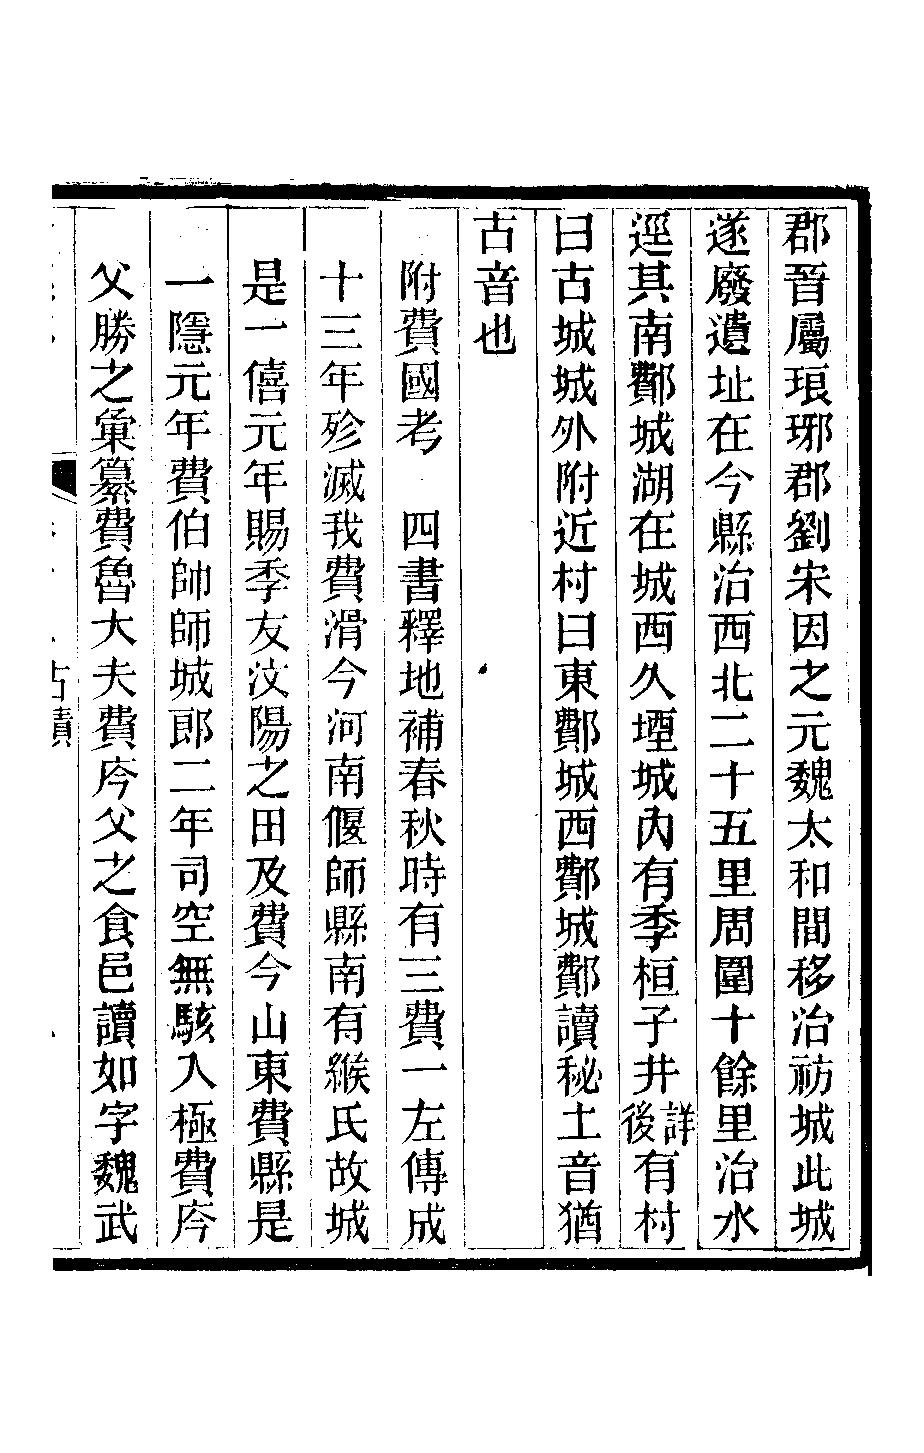 郡晉屬琅琊郡劉宋因之元魏太和間移治祊城此城
遂廢遺址在今縣治西北二十五里周圍十餘里治水
逕其南鄪城湖在城西久堙城內有季桓子井詳後有村
曰古城城外附近村曰東鄪城西鄪城鄪讀秘土音猶
古音也
附費國考　四書釋地補春秋時有三費一左傳成
十三年殄滅我費滑今河南偃師縣南有緱氏故城
是一僖元年賜季友汶陽之田及費今山東費縣是
一隱元年費伯帥師城郎二年司空無駭入極費庈
父勝之彙纂費魯大夫費庈父之食邑讀如字魏武
古蹟